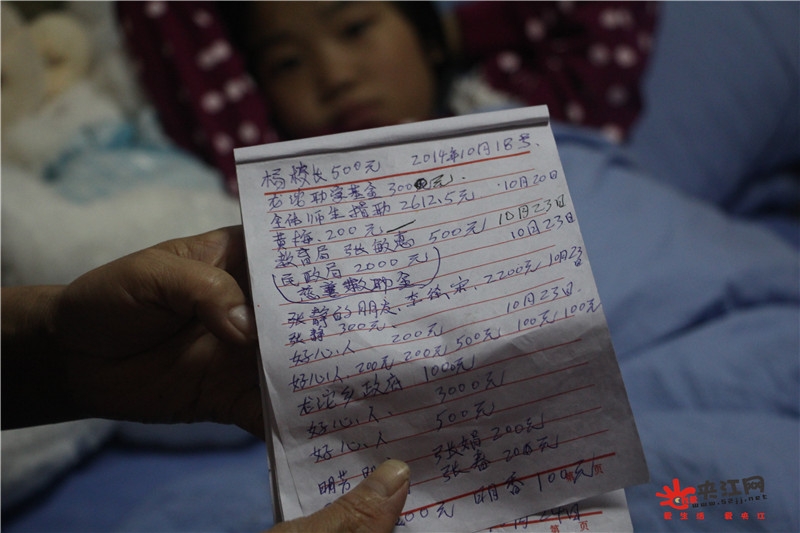 杨校长500元 2014年10月18号
龙沱助学基金3000元.
全体师生捐助2612.5元 10月20日
黄梅.200元
教育局 张敏惠 500元 10月23日
民政局2000元 10月23日
慈善救助金
张静的朋友. 李 2200元 10月23日
张静300元.
好心人 200元 10月23日.
好心人.200元 200元 500元 100元 100元
龙沱乡政府 1000元
好心人. 3000元
好心人. 500元
张娟200元
明芳 张春 200元
200元 明香 100元
第 页
月24日
第 页
夹江网
www.scjj.net
爱生活 爱夹江